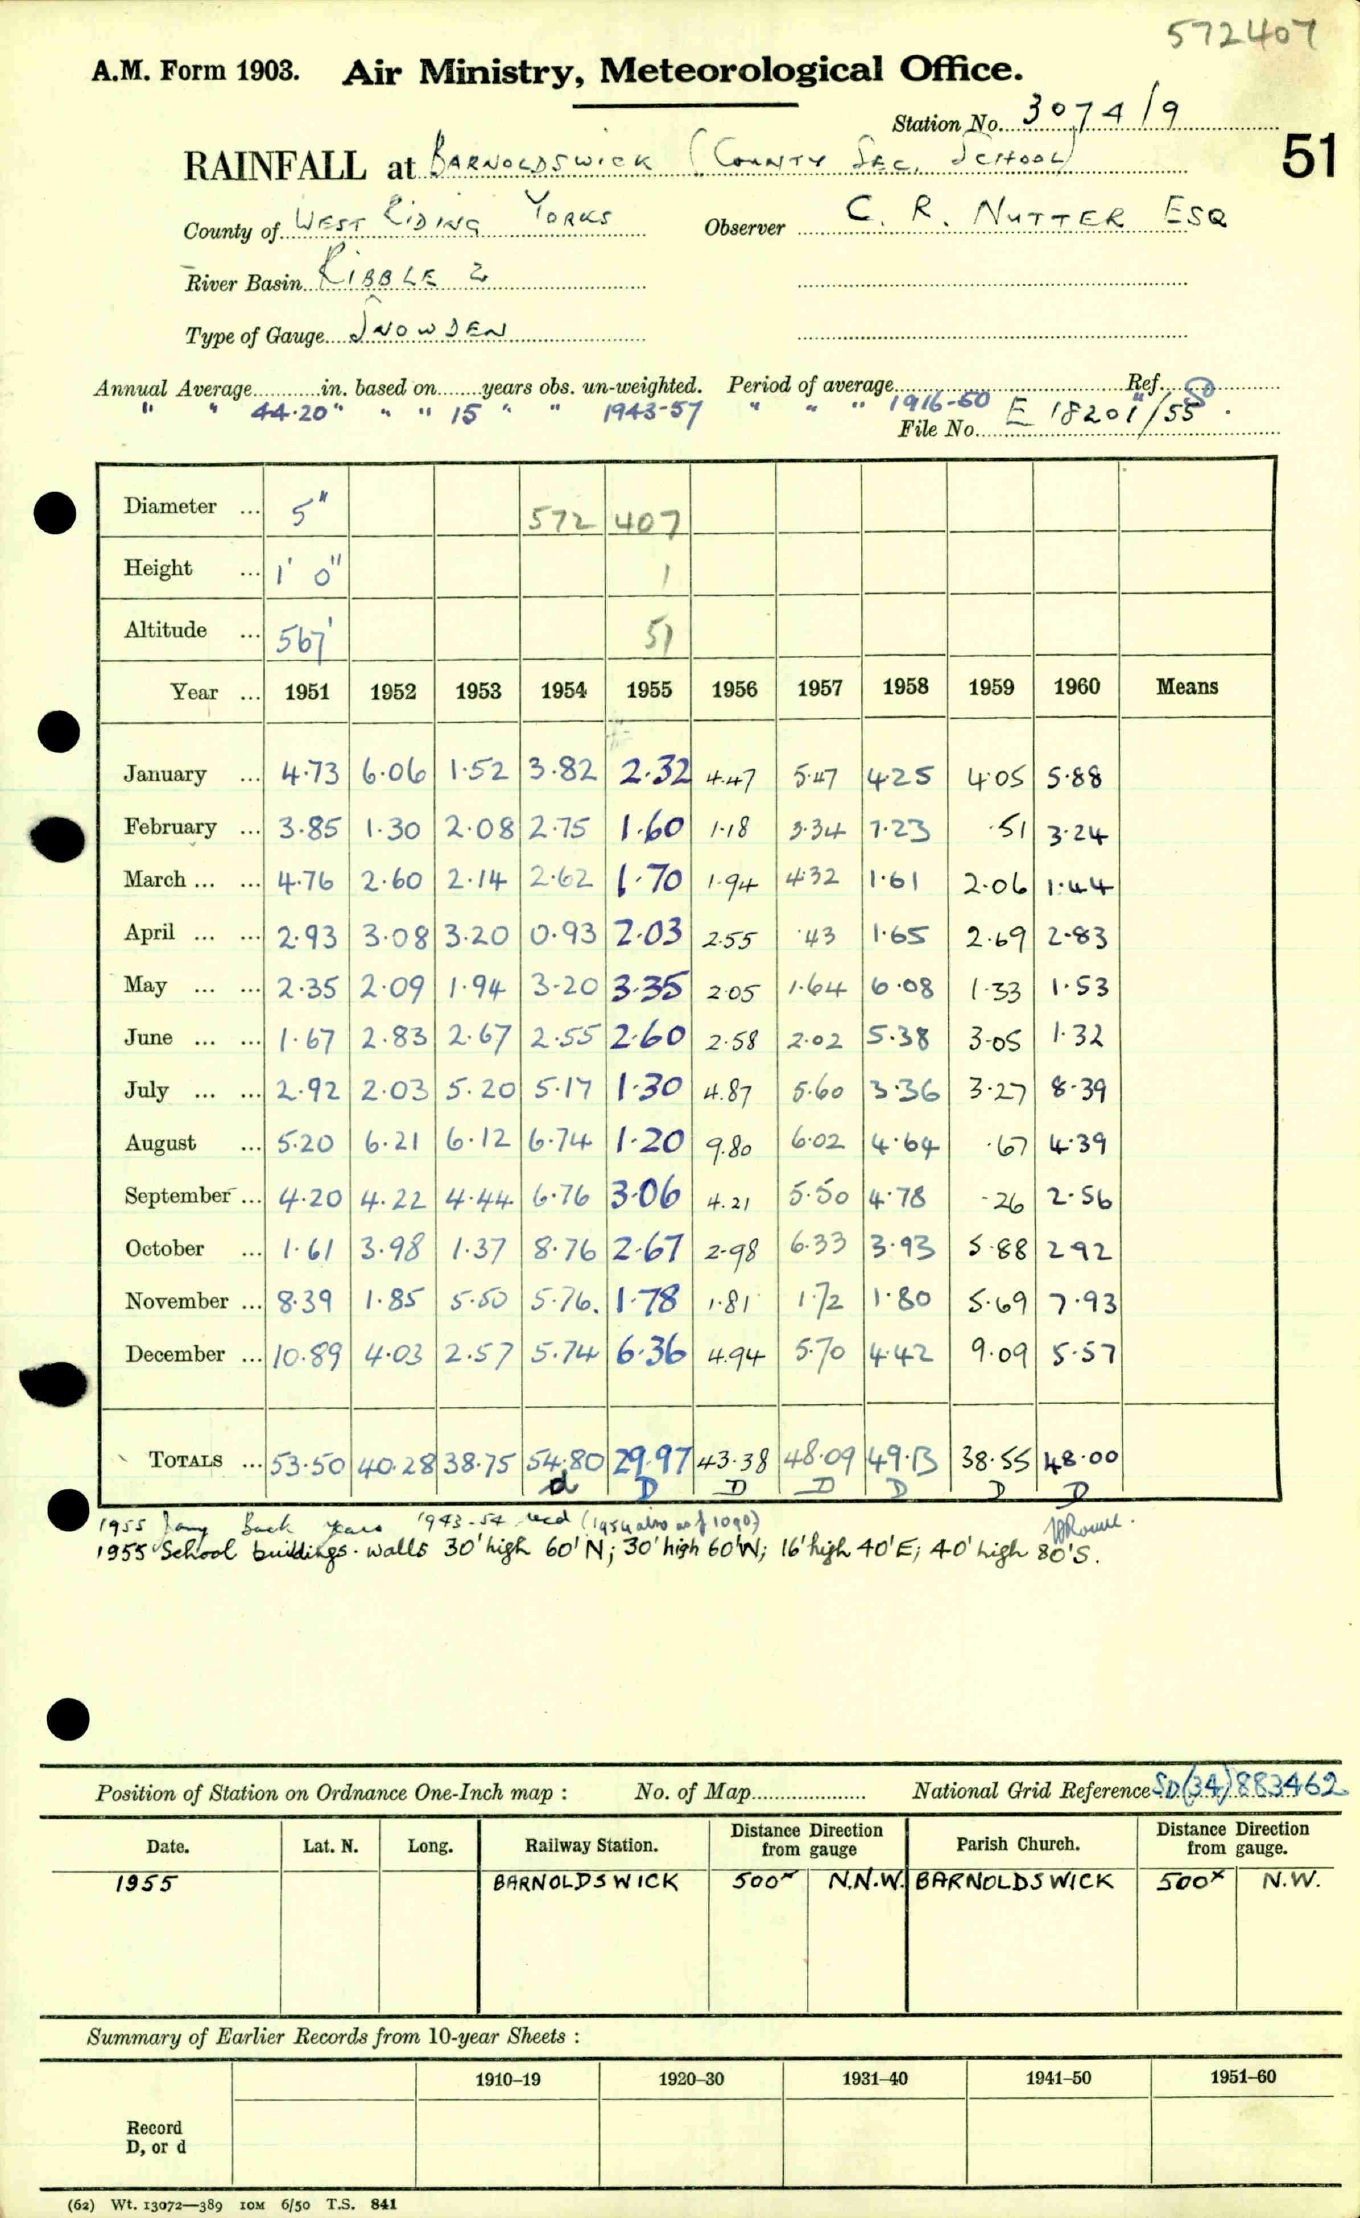 572407
A.M. Form 1903. Air Ministry, Meteorological Office.
Station No. 3074/9
51
RAINFALL at BARNOLDSWICK (COUNTY SEC. SCHOOL)
County of WEST RIDING YORKS Observer C. R. NUTTER ESQ
River Basin RIBBLE 2
Type of Gauge SNOWDEN
Annual Average in. based on years obs. un-weighted. Period of average Ref.
" " 44.20" " " 15 " " 1943-57 " " " 1916-50
File No. E 18201/55
Diameter ... 5" 572 407
Height ... 1' 0" 1
Altitude ... 567' 51
Year ... 1951 1952 1953 1954 1955 1956 1957 1958 1959 1960 Means
January ... 4.73 6.06 1.52 3.82 2.32 4.47 5.47 4.25 4.05 5.88
February ... 3.85 1.30 2.08 2.75 1.60 1.18 3.34 7.23 .51 3.24
March ... ... 4.76 2.60 2.14 2.62 1.70 1.94 4.32 1.61 2.06 1.44
April ... ... 2.93 3.08 3.20 0.93 2.03 2.55 .43 1.65 2.69 2.83
May ... ... 2.35 2.09 1.94 3.20 3.35 2.05 1.64 6.08 1.33 1.53
June ... ... 1.67 2.83 2.67 2.55 2.60 2.58 2.02 5.38 3.05 1.32
July ... ... 2.92 2.03 5.20 5.17 1.30 4.87 5.60 3.36 3.27 8.39
August ... 5.20 6.21 6.12 6.74 1.20 9.80 6.02 4.64 .67 4.39
September ... 4.20 4.22 4.44 6.76 3.06 4.21 5.50 4.78 .26 2.56
October ... 1.61 3.98 1.37 8.76 2.67 2.98 6.33 3.93 5.88 2.92
November ... 8.39 1.85 5.50 5.76. 1.78 1.81 1.72 1.80 5.69 7.93
December ... 10.89 4.03 2.57 5.74 6.36 4.94 5.70 4.42 9.09 5.57
TOTALS ... 53.50 40.28 38.75 54.80 29.97 43.38 48.09 49.13 38.55 48.00
d D D D D D D
1955 Jany Back years 1943-54 recd
1955 School buildings. walls 30' high 60' N; 30' high 60' W; 16' high 40' E; 40' high 80' S.
Position of Station on Ordnance One-Inch map : No. of Map National Grid Reference SD(34)883462
Date. Lat. N. Long. Railway Station. Distance Direction from gauge Parish Church. Distance Direction from gauge.
1955 BARNOLDSWICK 500x N.N.W. BARNOLDSWICK 500x N.W.
Summary of Earlier Records from 10-year Sheets :
1910–19 1920–30 1931–40 1941–50 1951–60
Record
D, or d
(62) Wt. 13072—389 10M 6/50 T.S. 841